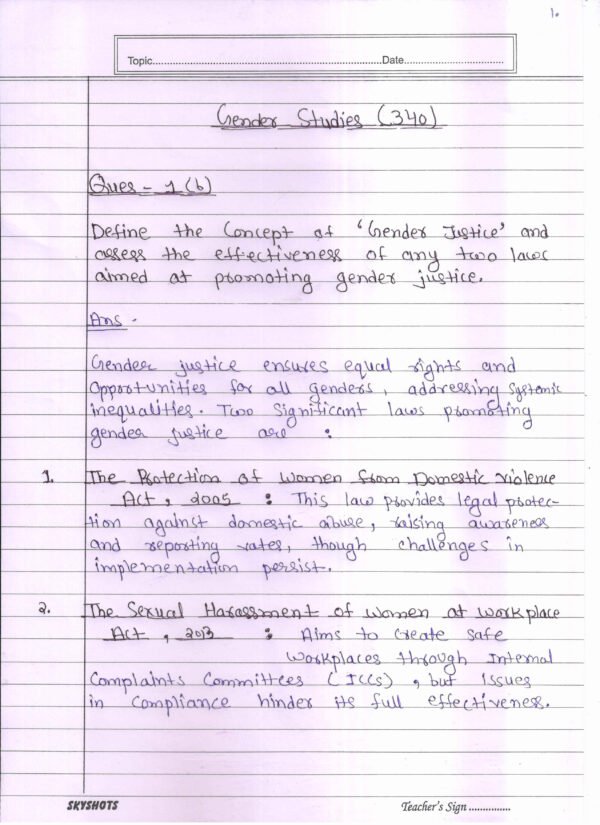 1.
Topic.....................................................................Date..............................
Gender Studies (340)
Ques - 1 (b)
Define the Concept of 'Gender Justice' and
assess the effectiveness of any two laws
aimed at promoting gender justice.
Ans -
Gender justice ensures equal rights and
opportunities for all genders, addressing systemic
inequalities. Two significant laws promoting
gender justice are :
1. The Protection of Women from Domestic violence
Act, 2005 : This law provides legal protec-
tion against domestic abuse, raising awareness
and reporting rates, though challenges in
implementation persist.
2. The Sexual Harassment of women at workplace
Act, 2013 : Aims to create safe
workplaces through Internal
Complaints Committees (ICCs), but issues
in compliance hinder its full effectiveness.
SKYSHOTS Teacher's Sign ...............